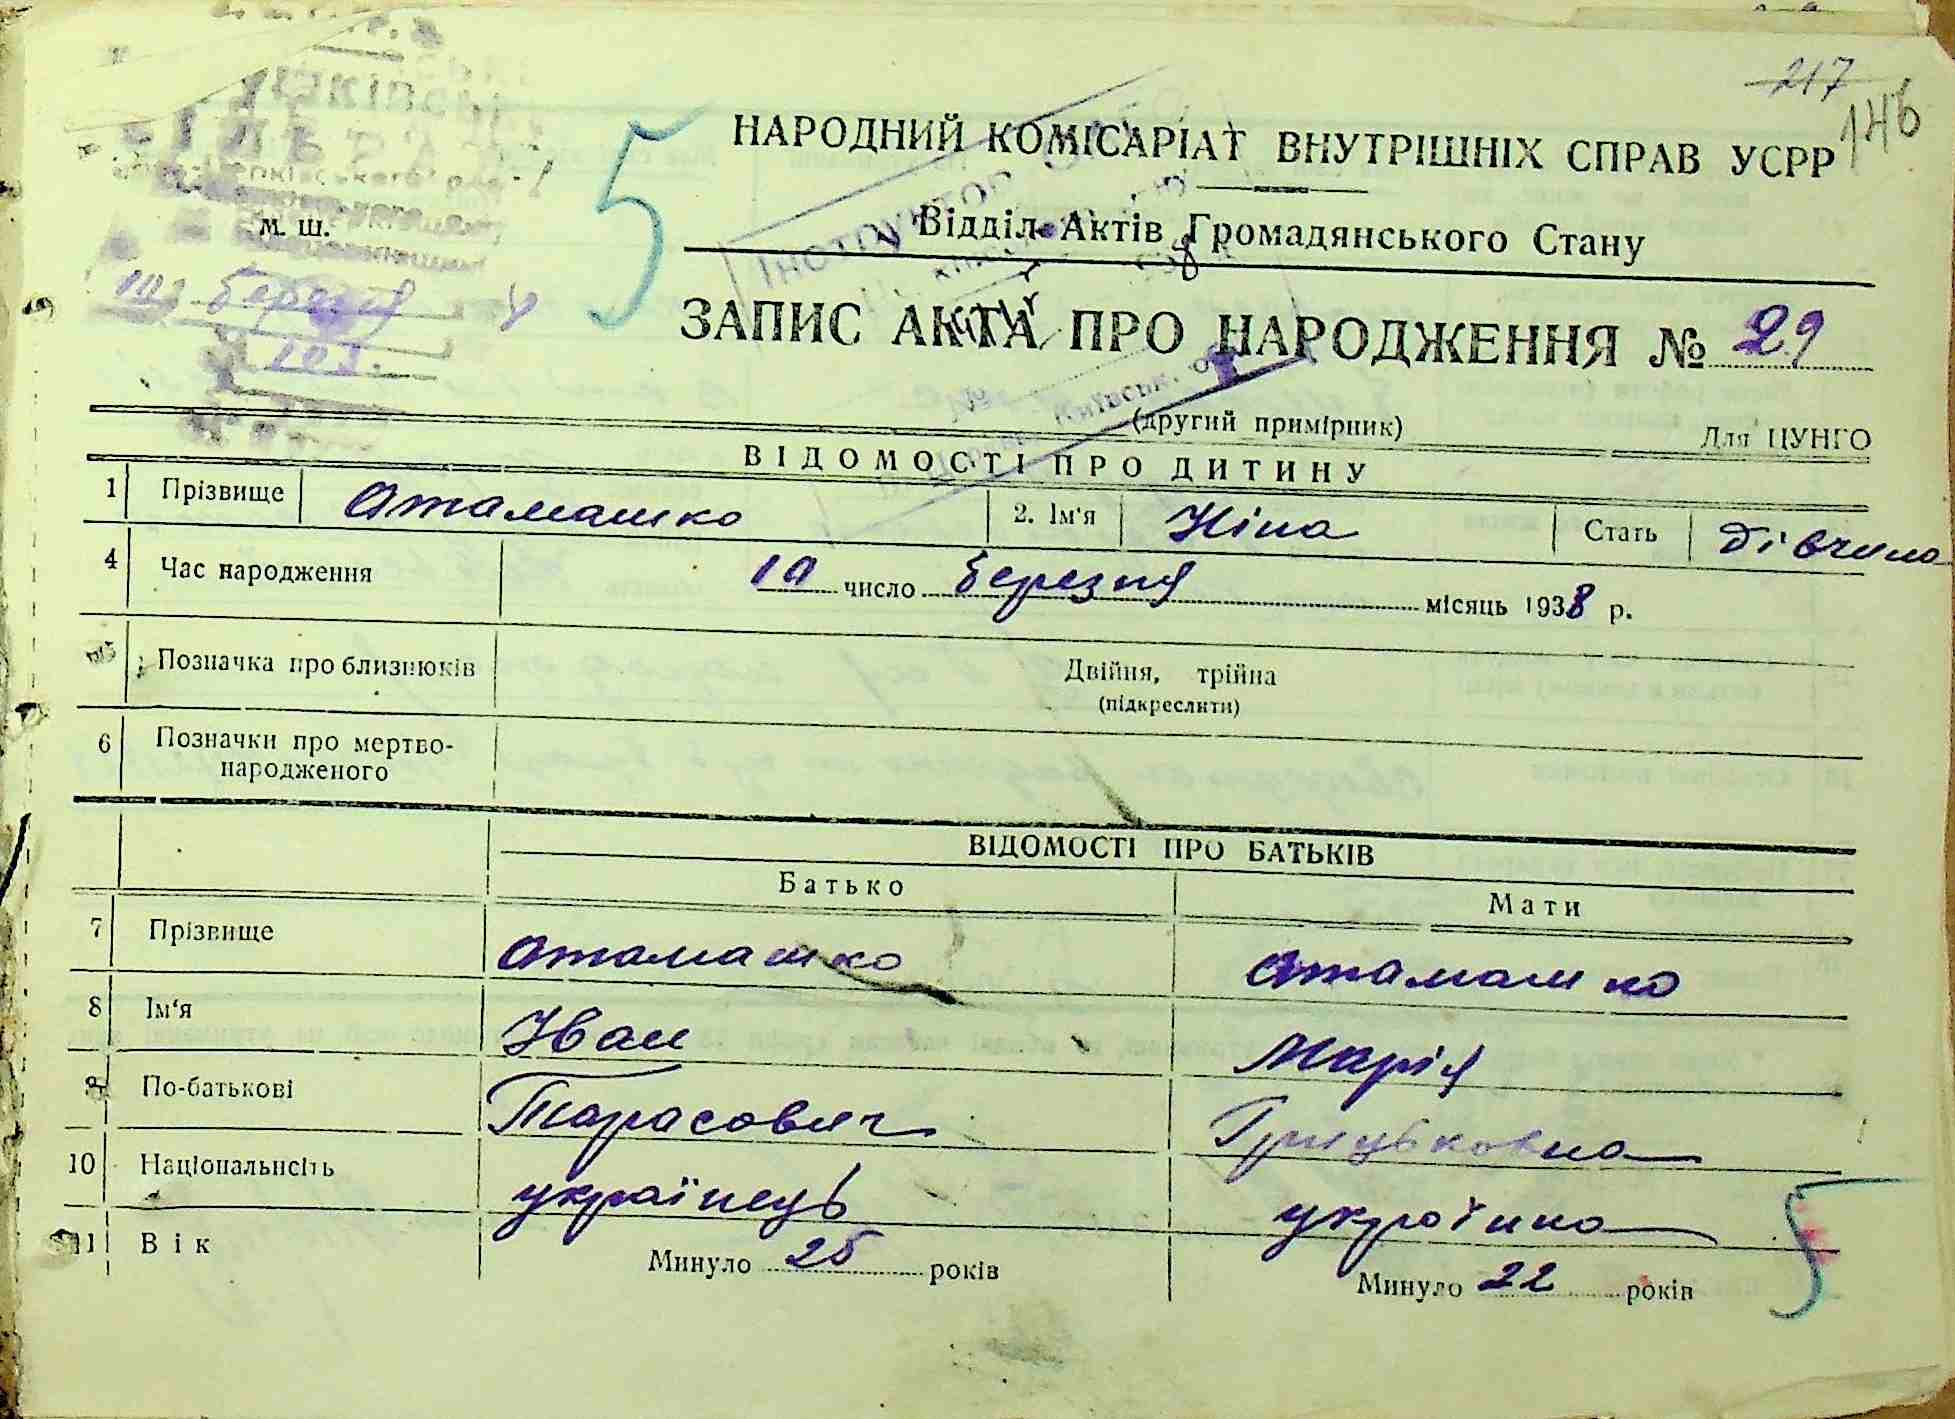 217
146
5
НАРОДНИЙ КОМІСАРІАТ ВНУТРІШНІХ СПРАВ УСРР
Відділ Актів Громадянського Стану
м. ш.
березня
ЗАПИС АКТА ПРО НАРОДЖЕННЯ № 29
(другий примірник)
Для ЦУНГО
ВІДОМОСТІ ПРО ДИТИНУ
1 Прізвище Атамашко 2. Ім'я Ніна Стать дівчина
4 Час народження 10 число березня місяць 1938 р.
5 Позначка про близнюків Двійня, трійна
(підкреслити)
6 Позначки про мертво-
народженого
ВІДОМОСТІ ПРО БАТЬКІВ
Батько Мати
7 Прізвище Атамашко Атамашко
8 Ім'я Іван Марія
9 По-батькові Тарасович Грицьковна
10 Національність українець українка
11 Вік Минуло 25 років Минуло 22 років
5